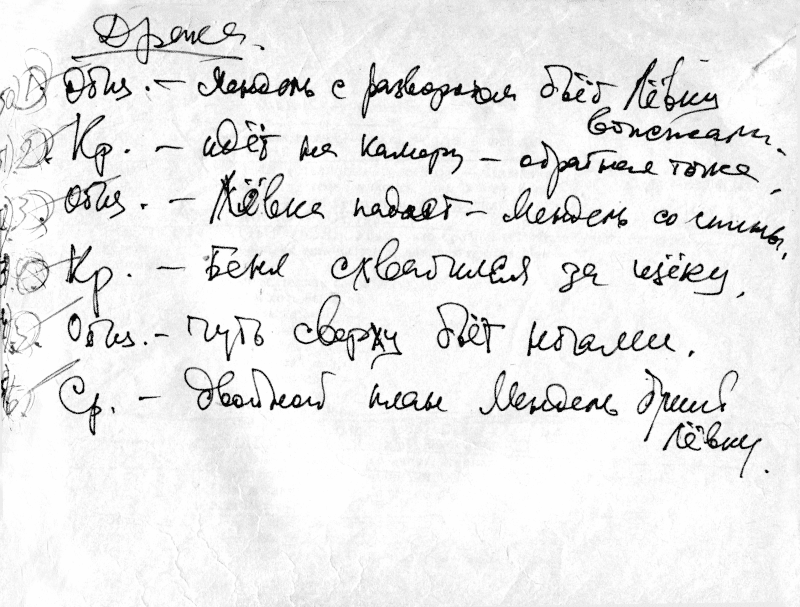 Драка.
1. Общ. – Мендель с разворотом бьёт Лёвку
вожжами.
2. Кр. – идёт на камеру – обратная точка,
3. Общ. – Лёвка падает – Мендель со спины,
Кр. – Беня схватился за щёку,
5. Общ. – чуть сверху бьёт ногами.
6. Ср. – двойной план Мендель
Лёвку.